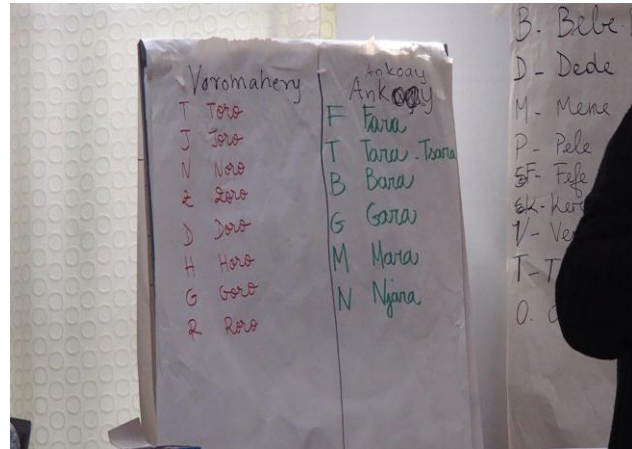 Voromahery
T Toro
J Joro
N Noro
Z Zoro
D Doro
H Horo
G Goro
R Roro
Ankoay
Ankoay
F Fara
T Tara - Tsara
B Bara
G Gara
M Mara
N Njara
B - Bebe
D - Dede
M - Meme
P - Pele
F - Fefe
K -
V -
T -
O.